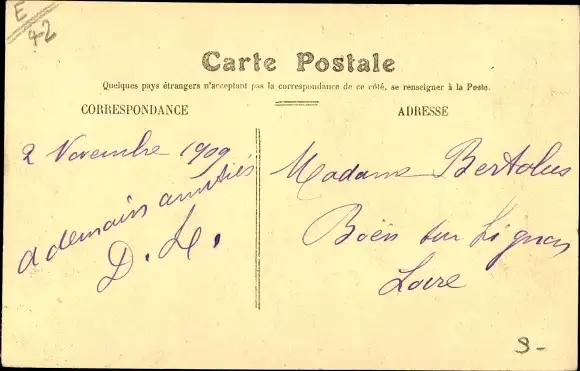 E
42
Carte Postale
Quelques pays étrangers n'acceptant pas la correspondance de ce côté, se renseigner à la Poste.
CORRESPONDANCE
ADRESSE
2 Novembre 1909
a demain amitiés
D. L.
Madame Bertolus
Boën sur Lignon
Loire
9-